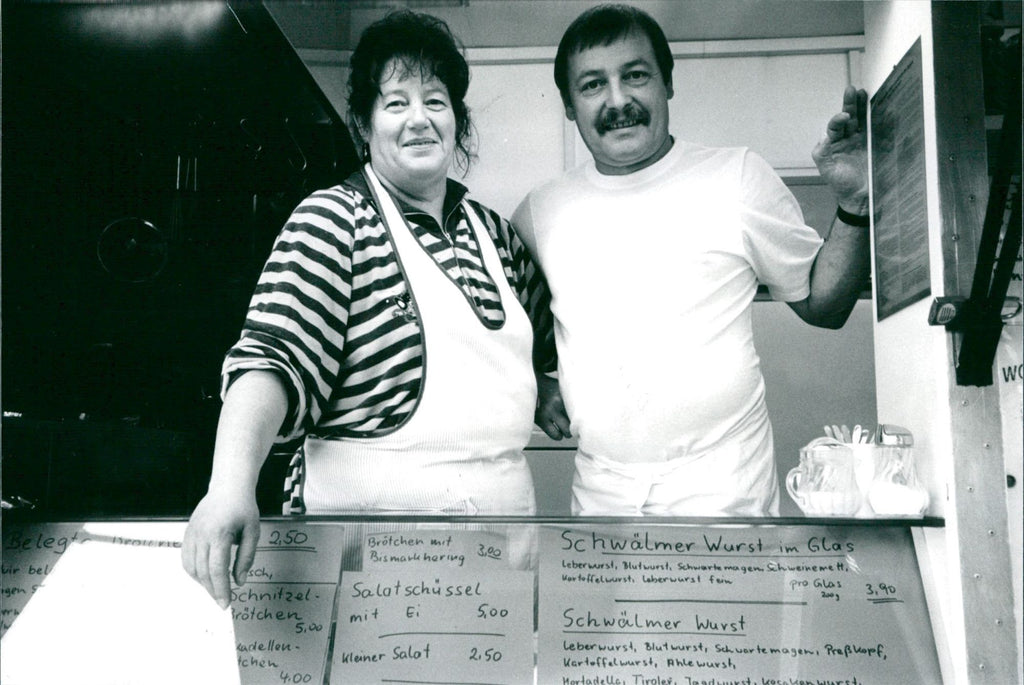 Belegte Brötchen 2,50
Wir bel
gen S
Schnitzel-
Brötchen
5,00
tchen
4.00
Brötchen mit
Bismarkhering 3,00
Salatschüssel
mit Ei 5,00
kleiner Salat 2,50
Schwälmer Wurst im Glas
Leberwurst, Blutwurst, Schwartemagen, Schweinemett,
Kartoffelwurst, Leberwurst fein
pro Glas 3,90
200g
Schwälmer Wurst
Leberwurst, Blutwurst, Schwartemagen, Preßkopf,
Kartoffelwurst, Ahlewurst,
Mortadella, Tiroler, Jagdwurst, Kosakenwurst,
WO